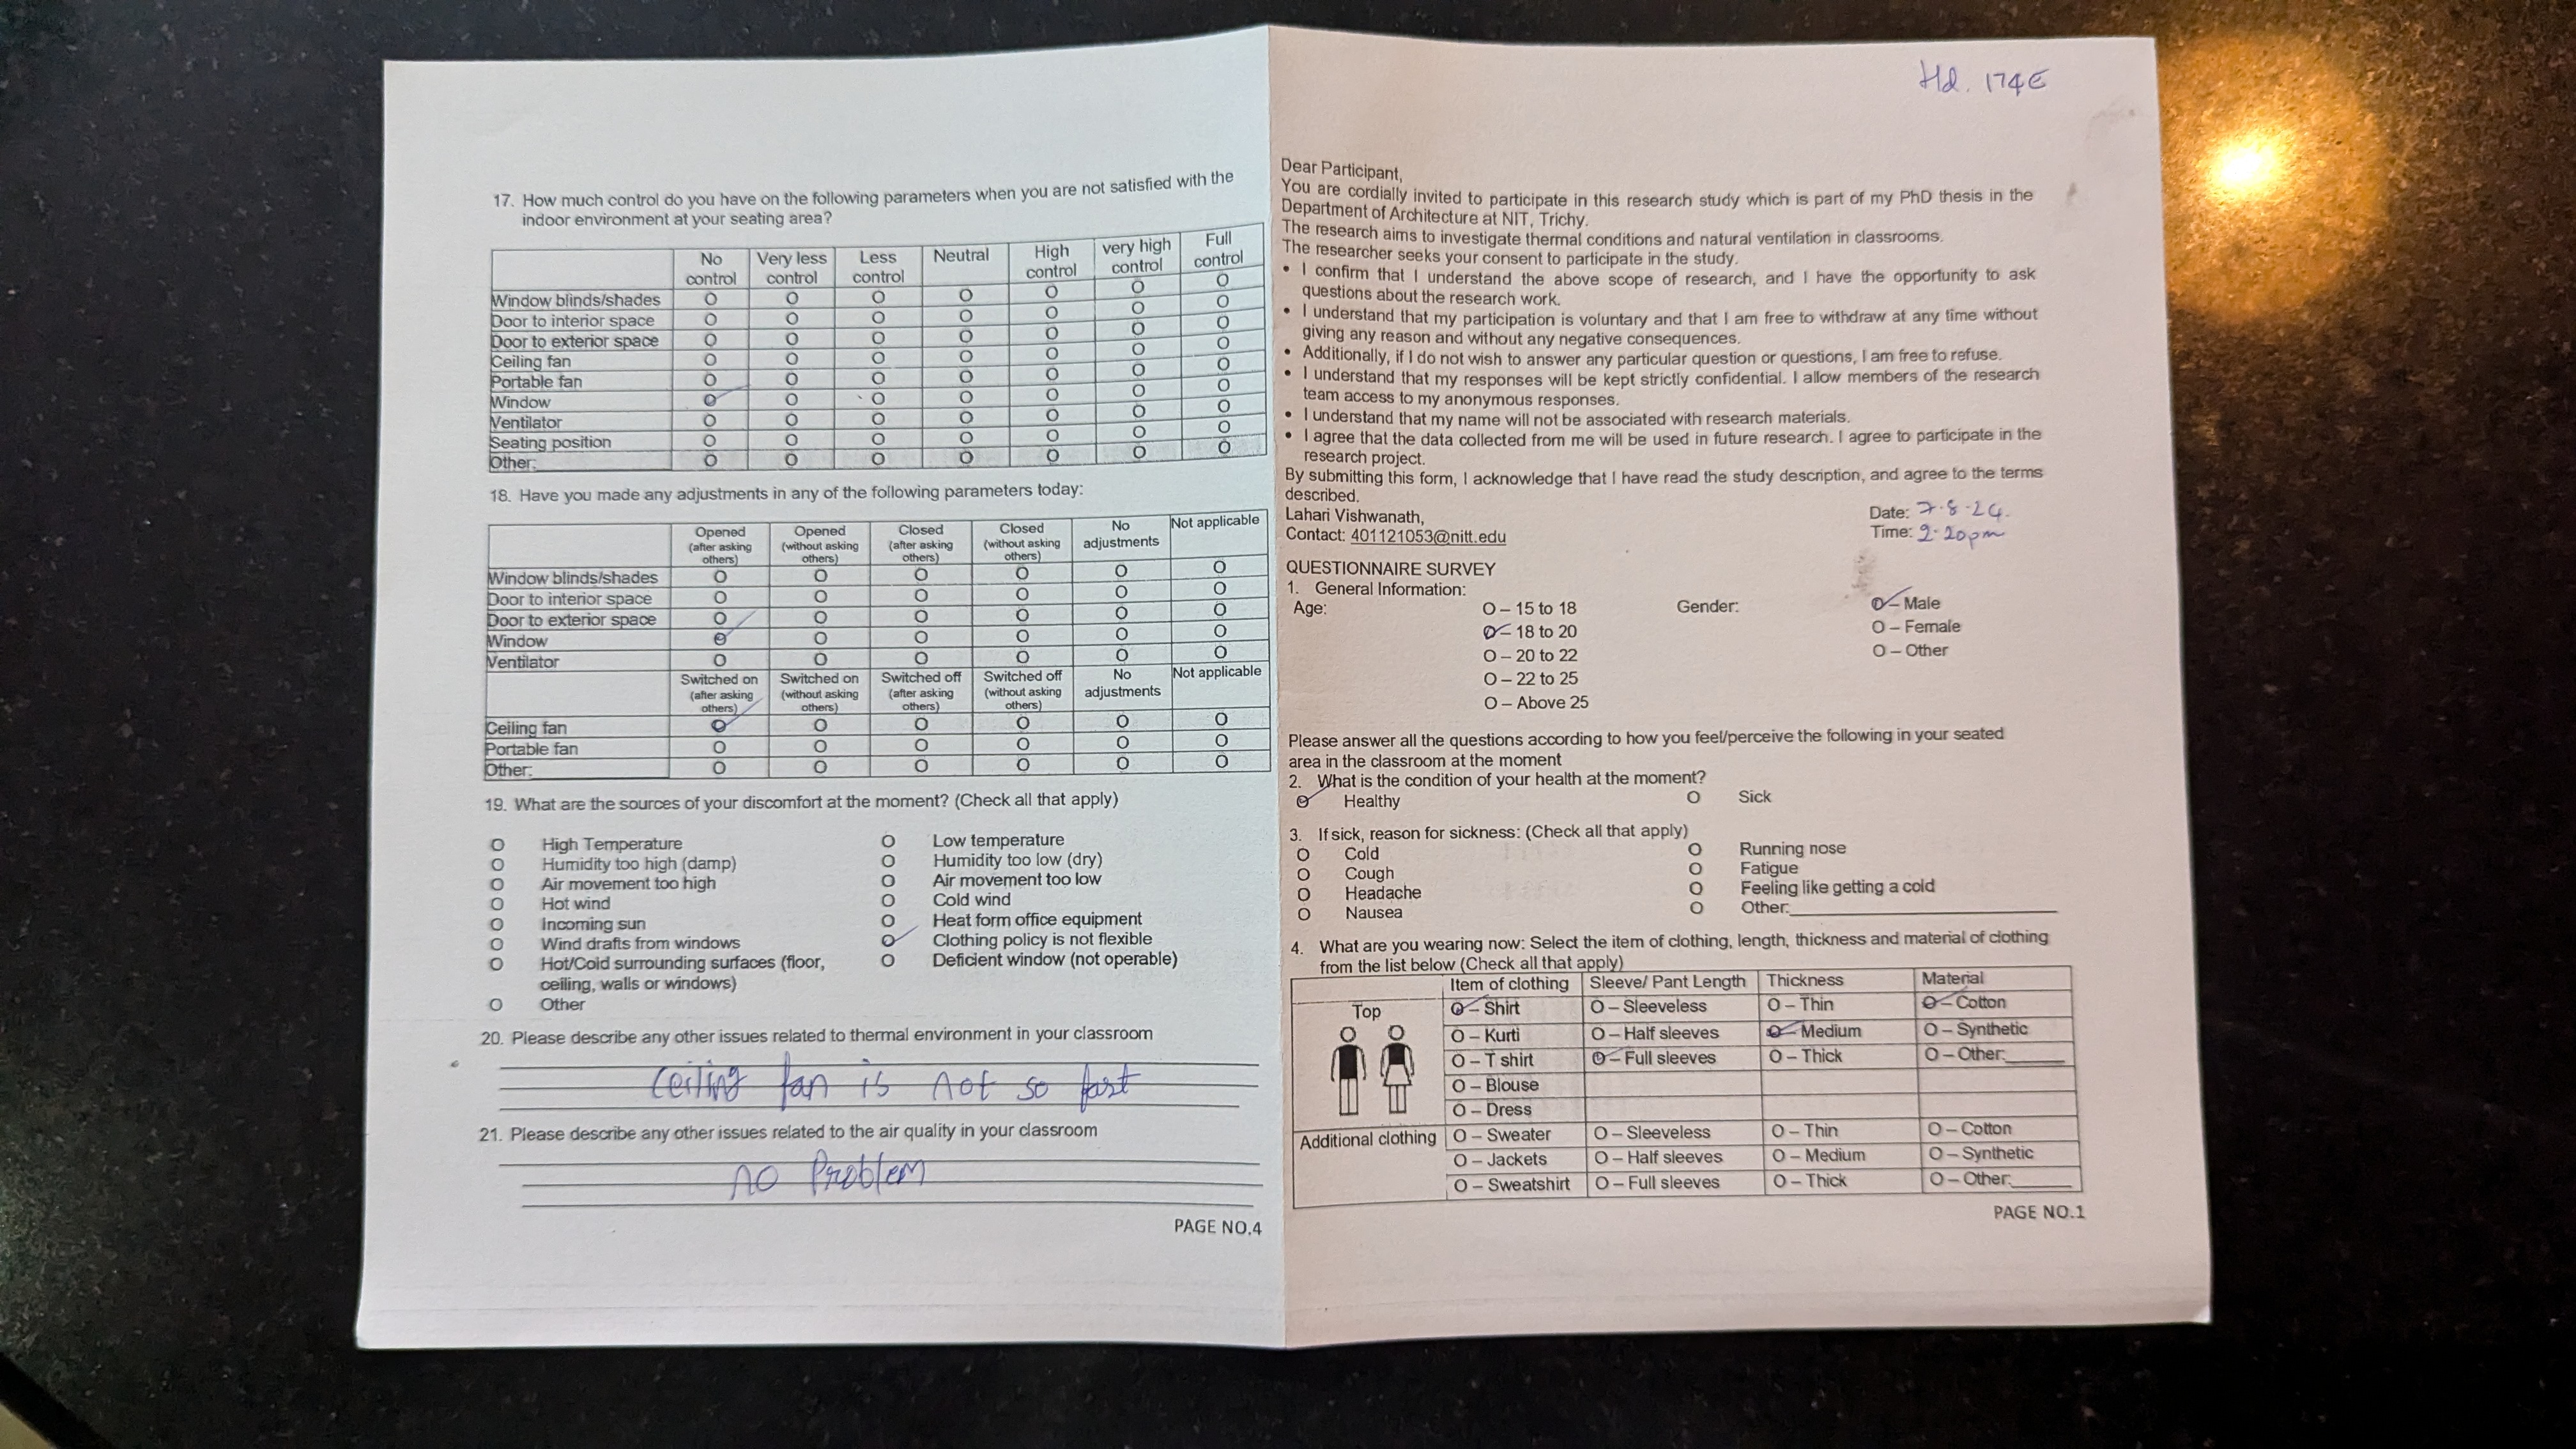 17. How much control do you have on the following parameters when you are not satisfied with the
indoor environment at your seating area?
No control Very less control Less control Neutral High control very high control Full control
Window blinds/shades O O O O O O O
Door to interior space O O O O O O O
Door to exterior space O O O O O O O
Ceiling fan O O O O O O O
Portable fan O O O O O O O
Window O O O O O O O
Ventilator O O O O O O O
Seating position O O O O O O O
Other: O O O O O O O
18. Have you made any adjustments in any of the following parameters today:
Opened (after asking others) Opened (without asking others) Closed (after asking others) Closed (without asking others) No adjustments Not applicable
Window blinds/shades O O O O O O
Door to interior space O O O O O O
Door to exterior space O O O O O O
Window O O O O O O
Ventilator O O O O O O
Switched on (after asking others) Switched on (without asking others) Switched off (after asking others) Switched off (without asking others) No adjustments Not applicable
Ceiling fan O O O O O O
Portable fan O O O O O O
Other: O O O O O O
19. What are the sources of your discomfort at the moment? (Check all that apply)
O High Temperature O Low temperature
O Humidity too high (damp) O Humidity too low (dry)
O Air movement too high O Air movement too low
O Hot wind O Cold wind
O Incoming sun O Heat form office equipment
O Wind drafts from windows O Clothing policy is not flexible
O Hot/Cold surrounding surfaces (floor, O Deficient window (not operable)
ceiling, walls or windows)
O Other
20. Please describe any other issues related to thermal environment in your classroom
Ceiling fan is not so fast
21. Please describe any other issues related to the air quality in your classroom
no Problem
PAGE NO.4
Hd. 174E
Dear Participant,
You are cordially invited to participate in this research study which is part of my PhD thesis in the
Department of Architecture at NIT, Trichy.
The research aims to investigate thermal conditions and natural ventilation in classrooms.
The researcher seeks your consent to participate in the study.
• I confirm that I understand the above scope of research, and I have the opportunity to ask
questions about the research work.
• I understand that my participation is voluntary and that I am free to withdraw at any time without
giving any reason and without any negative consequences.
• Additionally, if I do not wish to answer any particular question or questions, I am free to refuse.
• I understand that my responses will be kept strictly confidential. I allow members of the research
team access to my anonymous responses.
• I understand that my name will not be associated with research materials.
• I agree that the data collected from me will be used in future research. I agree to participate in the
research project.
By submitting this form, I acknowledge that I have read the study description, and agree to the terms
described.
Lahari Vishwanath, Date: 7.8.24.
Contact: 401121053@nitt.edu Time: 2.20pm
QUESTIONNAIRE SURVEY
1. General Information:
Age: O – 15 to 18 Gender: O – Male
O – 18 to 20 O – Female
O – 20 to 22 O – Other
O – 22 to 25
O – Above 25
Please answer all the questions according to how you feel/perceive the following in your seated
area in the classroom at the moment
2. What is the condition of your health at the moment?
O Healthy O Sick
3. If sick, reason for sickness: (Check all that apply)
O Cold O Running nose
O Cough O Fatigue
O Headache O Feeling like getting a cold
O Nausea O Other:
4. What are you wearing now: Select the item of clothing, length, thickness and material of clothing
from the list below (Check all that apply)
Item of clothing Sleeve/ Pant Length Thickness Material
Top O – Shirt O – Sleeveless O – Thin O – Cotton
O – Kurti O – Half sleeves O – Medium O – Synthetic
O – T shirt O – Full sleeves O – Thick O – Other:
O – Blouse
O – Dress
Additional clothing O – Sweater O – Sleeveless O – Thin O – Cotton
O – Jackets O – Half sleeves O – Medium O – Synthetic
O – Sweatshirt O – Full sleeves O – Thick O – Other:
PAGE NO.1